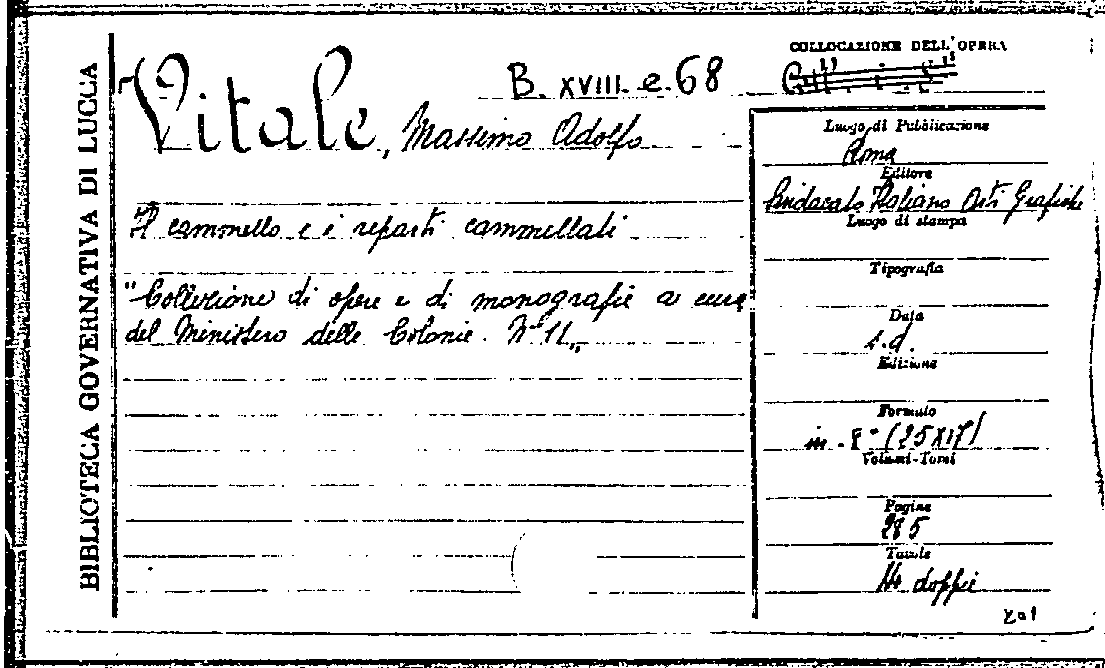 BIBLIOTECA GOVERNATIVA DI LUCCA
COLLOCAZIONE DELL'OPERA
B. XVIII. e. 68
Vitale, Massimo Adolfo
Il cammello e i reparti cammellati
"Collezione di opere e di monografie a cura
del Ministero delle Colonie. N° 11„
Luogo di Pubblicazione
Roma
Editore
Sindacato Italiano Arti Grafiche
Luogo di stampa
Tipografia
Data
s.d.
Edizione
Formato
in-8° (25x17)
Volumi-Tomi
Pagine
285
Tavole
doppie